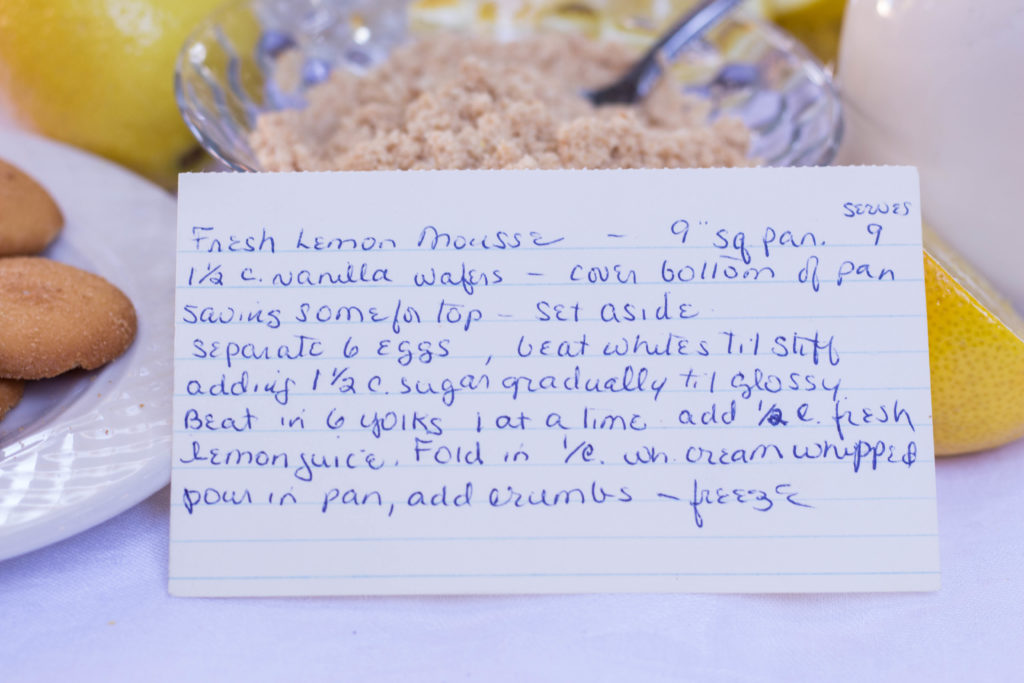 SERVES
Fresh Lemon Mousse - 9" sq pan. 9
1½ c. vanilla wafers - cover bottom of pan
saving some for top - set aside
separate 6 eggs, beat whites til stiff
adding 1½ c. sugar gradually til glossy
Beat in 6 yolks 1 at a time. add ½ c. fresh
lemon juice. Fold in 1/c. wh. cream whipped
pour in pan, add crumbs - freeze